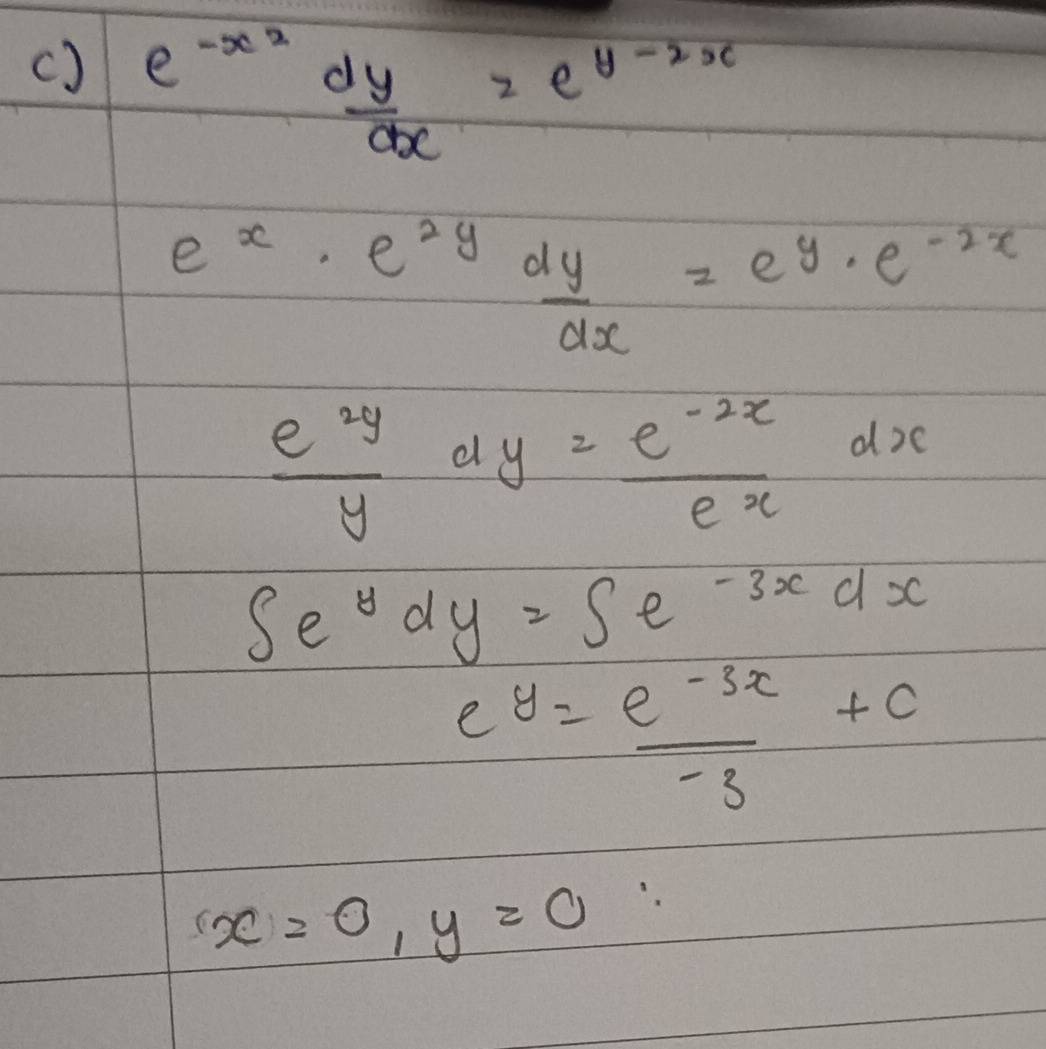 c) e^{-x^2} dy/dx = e^{y-2x}
e^x . e^{2y} dy/dx = e^y . e^{-2x}
e^{2y}/y dy = e^{-2x}/e^x dx
∫e^y dy = ∫e^{-3x} dx
e^y = e^{-3x}/-3 + C
x = 0, y = 0 :